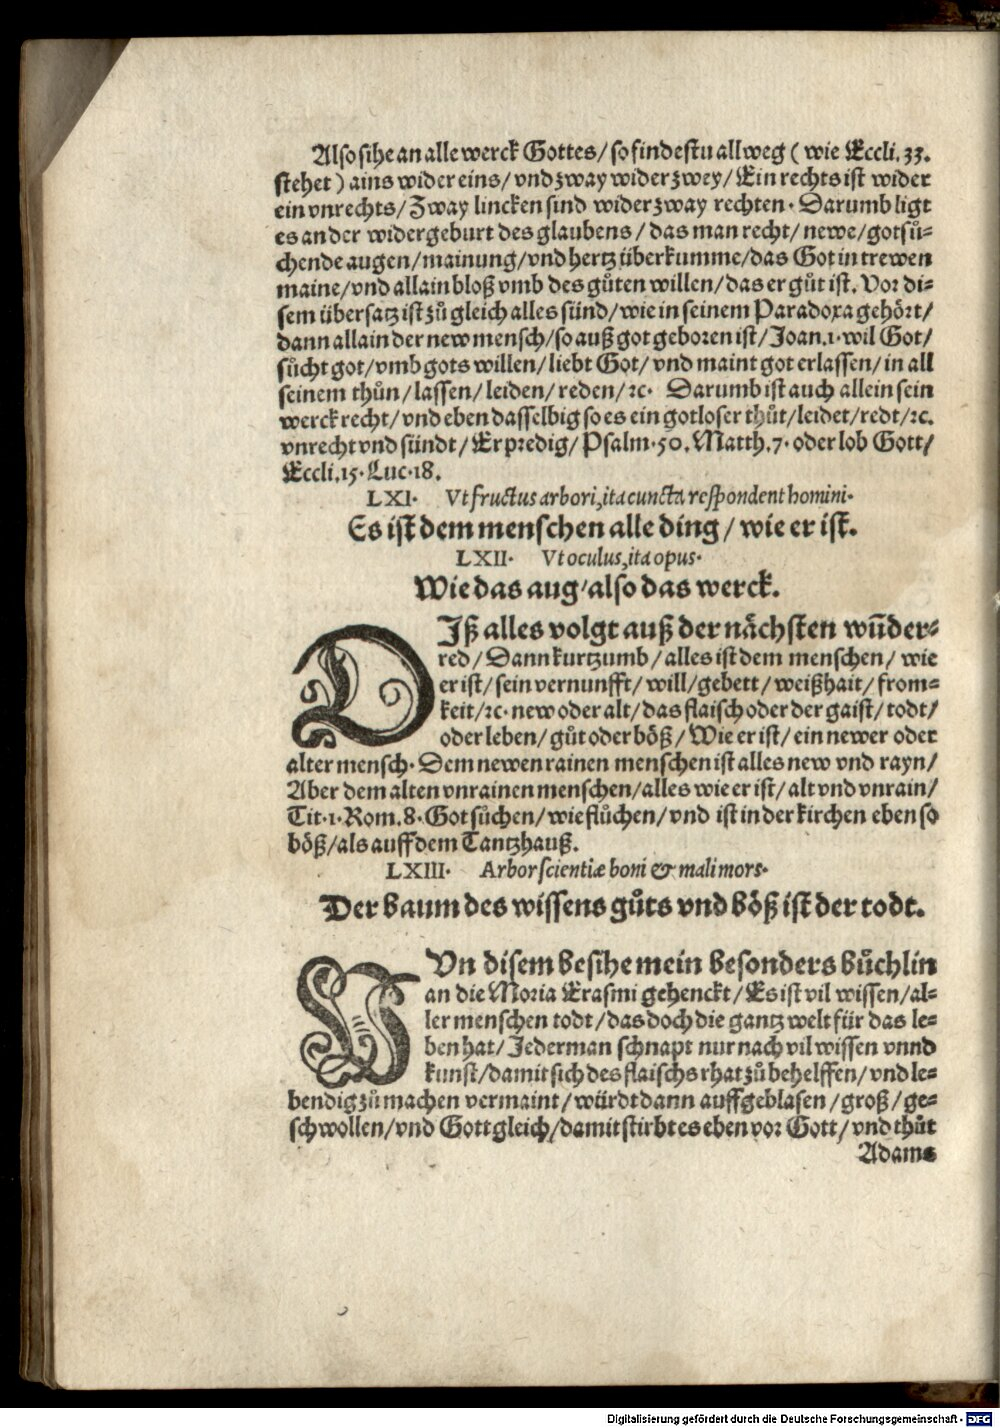 Also sihe an alle werck Gottes/ so findestu allweg ( wie Eccli. 33.
stehet ) ains wider eins/ vnd zway wider zwey/ Ein rechts ist wider
ein vnrechts/ Zway lincken sind wider zway rechten. Darumb ligt
es an der widergeburt des glaubens/ das man recht/ newe/ gotsů-
chende augen/ mainung/ vnd hertz überkumme/ das Got in trewen
maine/ vnd allain bloß vmb des gůten willen/ das er gůt ist. Vor di-
sem übersatz ist zů gleich alles sünd/ wie in seinem Paradoxa gehört/
dann allain der new mensch/ so auß got geboren ist/ Joan. 1. wil Got/
sůcht got/ vmb gots willen/ liebt Got/ vnd maint got erlassen/ in all
seinem thůn/ lassen/ leiden/ reden/ ꝛc. Darumb ist auch allein sein
werck recht/ vnd eben dasselbig so es ein gotloser thůt/ leidet/ redt/ ꝛc.
vnrecht vnd sündt/ Er predig/ Psalm. 50. Matth. 7. oder lob Gott/
Eccli. 15. Luc. 18.
LXI. Vt fructus arbori, ita cuncta respondent homini.
Es ist dem menschen alle ding/ wie er ist.
LXII. Vt oculus, ita opus.
Wie das aug/ also das werck.
DIß alles volgt auß der nächsten wūder-
red/ Dann kurtzumb/ alles ist dem menschen/ wie
er ist/ sein vernunfft/ will/ gebett/ weißhait/ from-
keit/ ꝛc. new oder alt/ das flaisch oder der gaist/ todt/
oder leben/ gůt oder böß/ Wie er ist/ ein newer oder
alter mensch. Dem newen rainen menschen ist alles new vnd rayn/
Aber dem alten vnrainen menschen/ alles wie er ist/ alt vnd vnrain/
Tit. 1. Rom. 8. Got sůchen/ wie flůchen/ vnd ist in der kirchen eben so
böß/ als auff dem Tantzhauß.
LXIII. Arbor scientiæ boni & mali mors.
Der baum des wissens gůts vnd böß ist der todt.
VOn disem besihe mein besonders bůchlin
an die Moria Erasmi gehenckt/ Es ist vil wissen/ al-
ler menschen todt/ das doch die gantz welt für das le-
ben hat/ Jederman schnapt nur nach vil wissen vnnd
kunst/ damit sich des flaischs rhat zů behelffen/ vnd le-
bendig zů machen vermaint/ würdt dann auffgeblasen/ groß/ ge-
schwollen/ vnd Gott gleich/ damit stirbt es eben vor Gott/ vnd thůt
Adams
Digitalisierung gefördert durch die Deutsche Forschungsgemeinschaft - DFG